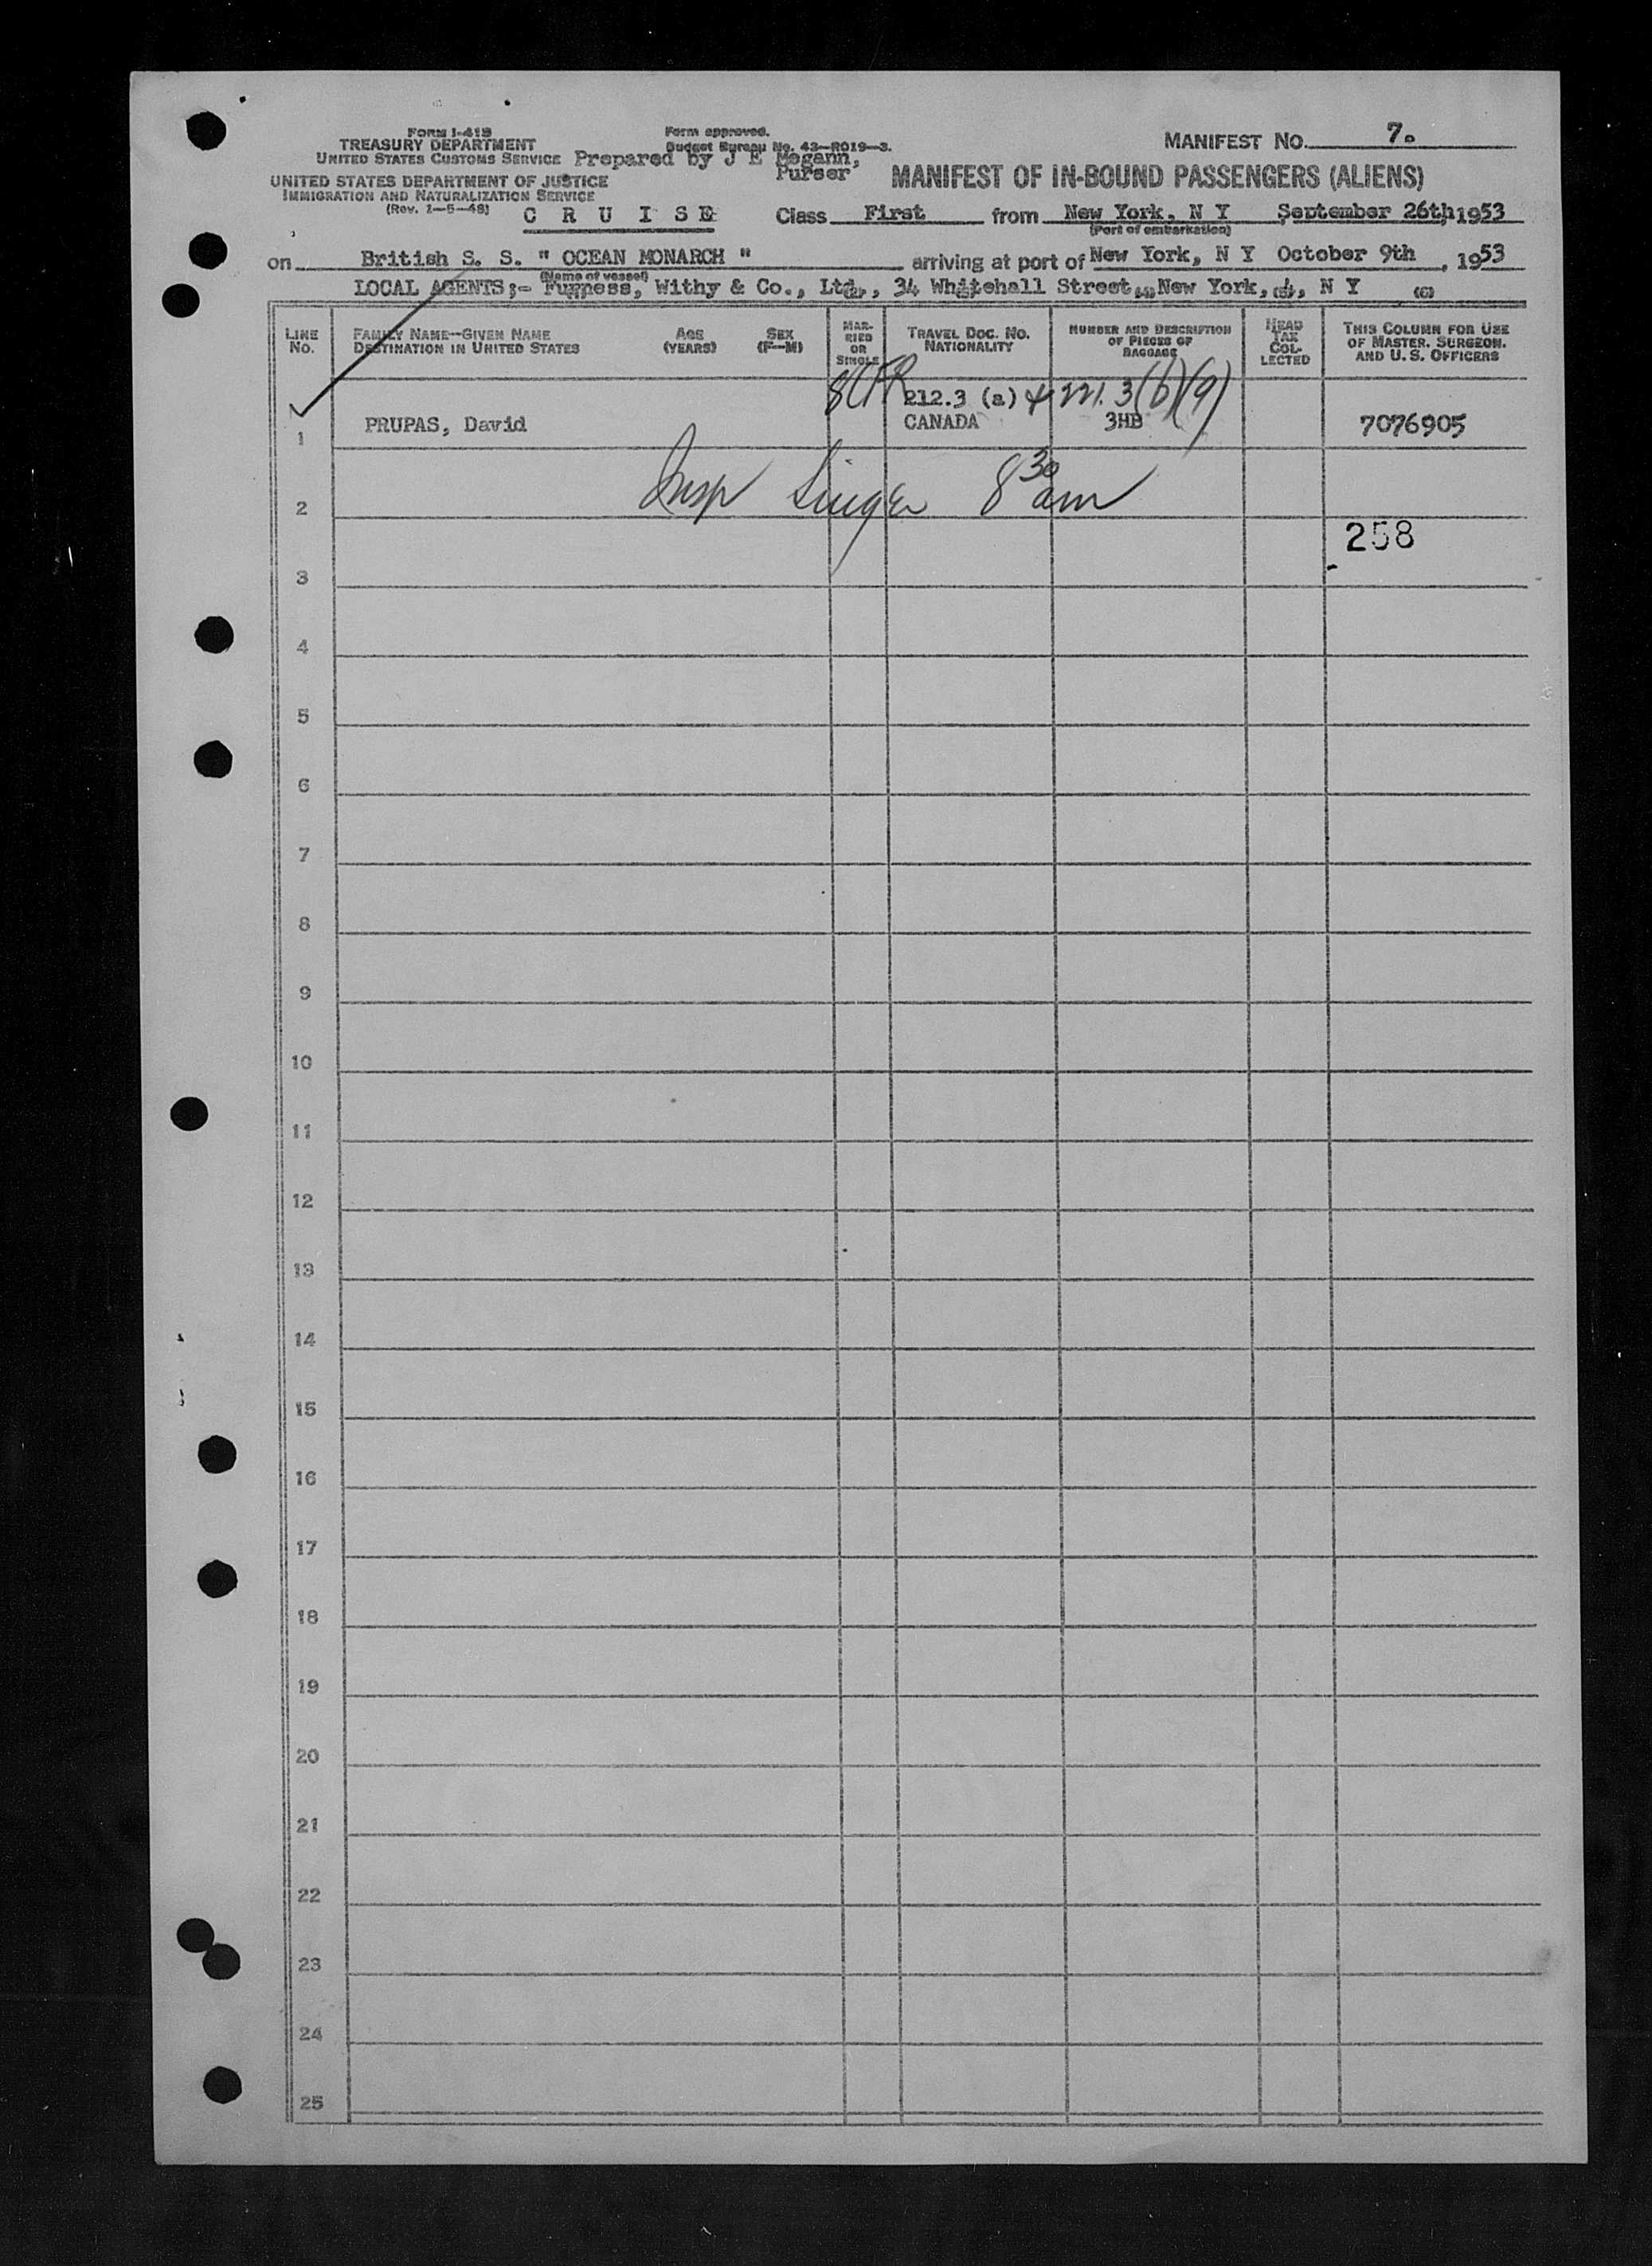 FORM I-418
TREASURY DEPARTMENT
UNITED STATES CUSTOMS SERVICE
UNITED STATES DEPARTMENT OF JUSTICE
IMMIGRATION AND NATURALIZATION SERVICE
(Rev. 1-5-48)
Form approved.
Budget Bureau No. 43-R019-3.
Prepared by J E Megann,
Purser
MANIFEST NO. 7.
MANIFEST OF IN-BOUND PASSENGERS (ALIENS)
C R U I S E Class First from New York, N Y September 26th, 1953
(Port of embarkation)
on British S. S. " OCEAN MONARCH " arriving at port of New York, N Y October 9th, 1953
(Name of vessel)
LOCAL AGENTS;- Furness, Withy & Co., Ltd., 34 Whitehall Street, New York, 4, N Y (6)
LINE No. FAMILY NAME—GIVEN NAME DESTINATION IN UNITED STATES AGE (YEARS) SEX (F—M) MARRIED OR SINGLE TRAVEL DOC. NO. NATIONALITY NUMBER AND DESCRIPTION OF PIECES OF BAGGAGE HEAD TAX COLLECTED THIS COLUMN FOR USE OF MASTER, SURGEON, AND U. S. OFFICERS
8CFR 212.3 (a) & 221.3(b)(9)
1 PRUPAS, David CANADA 3HB 7076905
2 Insp Singer 8 30 am
258
3
4
5
6
7
8
9
10
11
12
13
14
15
16
17
18
19
20
21
22
23
24
25